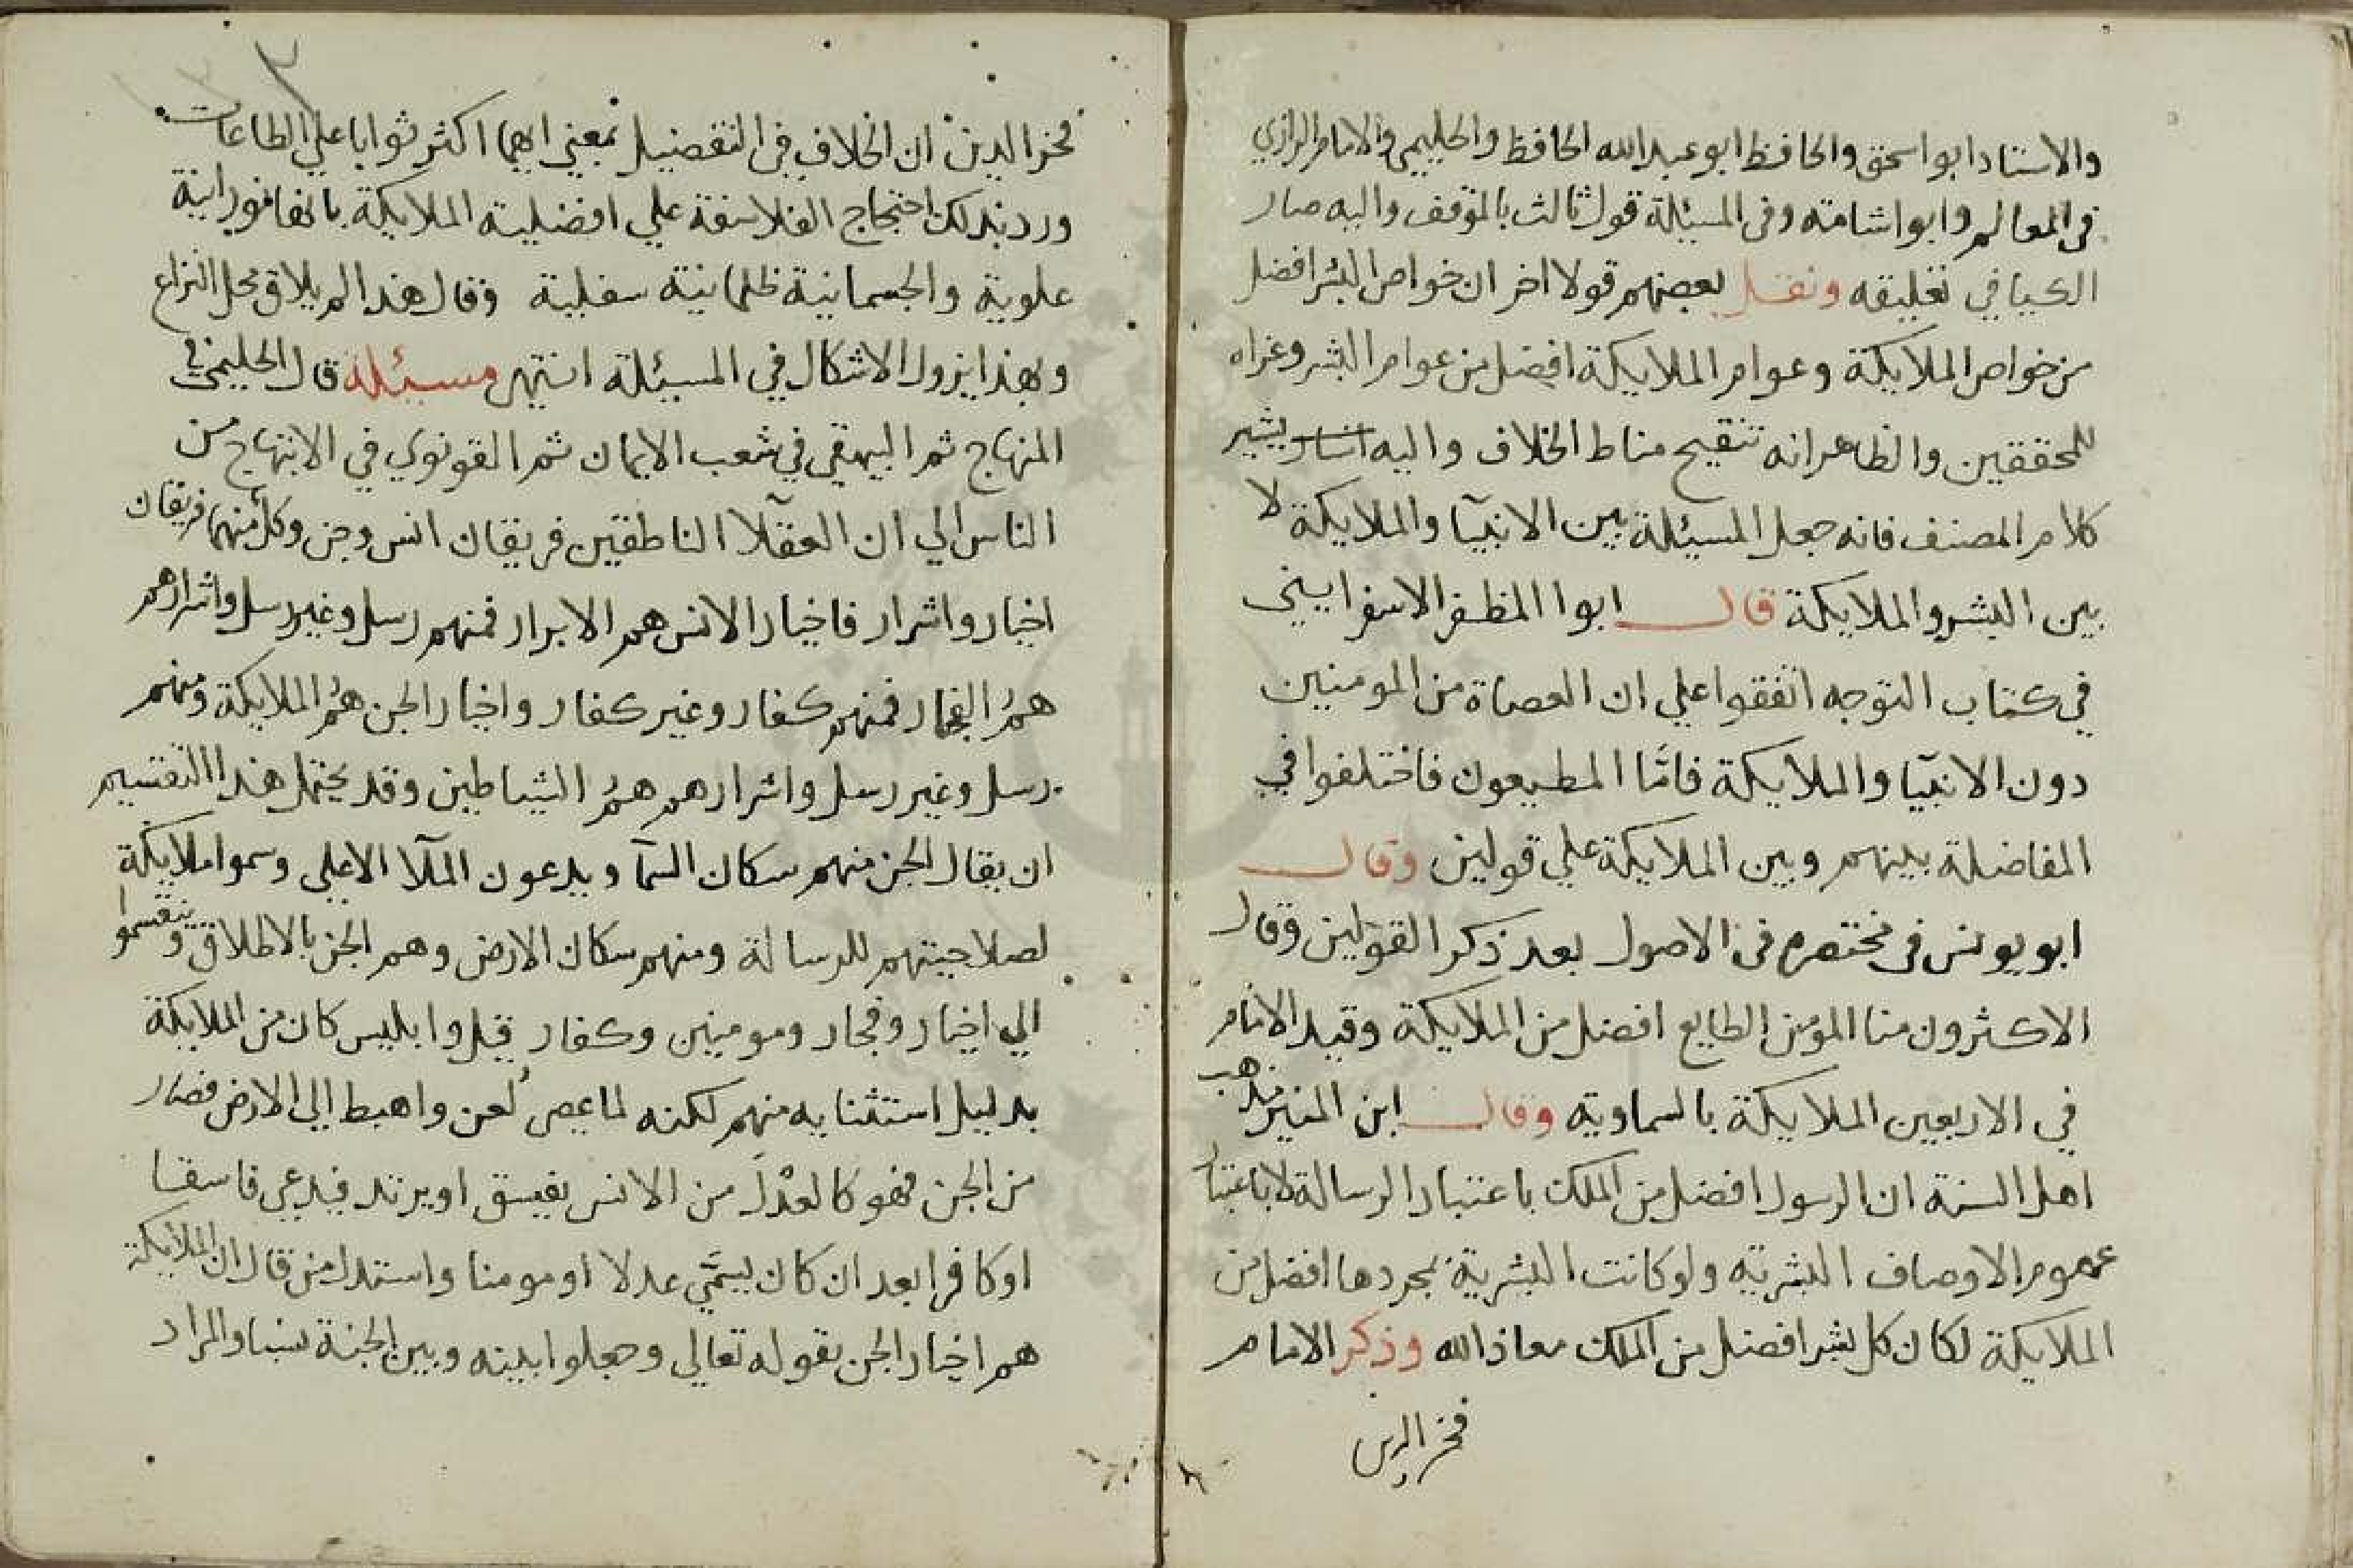 والاستاد ابو اسحق والحافظ ابو عبد الله الحافظ والحليمي والامام الرازي
في المعالم وابو اشامته وفي المسيئلة قول ثالث بالموقف واليه صار
الكيا في تعليقه ونقل بعضهم قولا اخر ان خواص البشر افضل
من خواص الملايكة وعوام الملايكة افضل من عوام البشر وعزاه
للمحققين والظاهر انه تنقيح مناط الخلاف واليه يشير
كلام المصنف فانه جعل المسيئلة بين الانبيآ والملايكة لا
بين البشر والملايكة قال ابوا المظفر الاسفراييني
في كتاب التوجه اتفقوا علي ان العصاة من المومنين
دون الانبيآ والملايكة فامَّا المطيعون فاختلفوا في
المفاضلة بينهم وبين الملايكة علي قولين وقال
ابو يونس في مختصره في الاصول بعد ذكر القولين وقال
الاكثرون منا المؤمن الطايع افضل من الملايكة وقيد الامام
في الاربعين الملايكة بالسماوية وقال ابن المنير مذهب
اهل السنة ان الرسول افضل من الملك باعتبار الرسالة لا باعتبار
عموم الاوصاف البشرية ولو كانت البشرية بمجردها افضل من
الملايكة لكان كل بشر افضل من الملك معاذ الله وذكر الامام
فخر الدين
٣
فخر الدين ان الخلاف في التفضيل بمعني ايهما اكثر ثوابا علي الطاعات
ورد بذلك احتجاج الفلاسفة علي افضلية الملايكة بانها نورانية
علوية والجسمانية ظلمانية سفلية وقال هذا لم يلاق محل النزاع
وبهذا يزول الاشكال في المسيئلة انتهي مسيئلة قال الحليمي في
المنهاج ثم البيهقي في شعب الايمان ثم القونوي في الابتهاج من
الناس الي ان العقلآ الناطقين فريقان انس وجن وكل منهما فريقان
اخيار واشرار فاخيار الانس هم الابرار فمنهم رسل وغير رسل واشرارهم
همُ الفجار فمنهم كفار وغير كفار واخيار الجن همُ الملايكة ومنهم
رسل وغير رسل واشرارهم همُ الشياطين وقد يحتمل هذا التقسيم
ان يقال الجن منهم سكان السمآ ويدعون الملآ الاعلي وسموا ملايكة
لصلاحيتهم للرسالة ومنهم سكان الارض وهم الجن بالاطلاق وينقسموا
الي اخيار وفجار ومومنين وكفار قيل وابليس كان من الملايكة
بدليل استثنايه منهم لكنه لما عصي لُعن واهبط الي الارض فصار
من الجن فهو كالعدْل من الانس يفيسق او يرتد فيدعي فاسقا
او كافرا بعد ان كان يسمَّي عدلا او مومنا واستدل من قال ان الملايكة
هم اخيار الجن بقوله تعالي وجعلوا بينه وبين الجنة نسبا والمراد